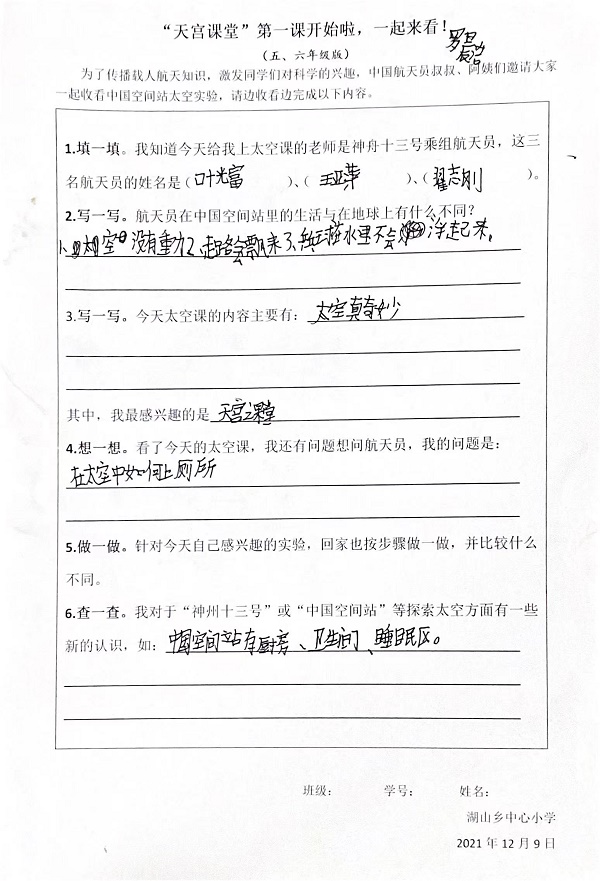 “天宫课堂”第一课开始啦，一起来看！
（五、六年级版）
为了传播载人航天知识，激发同学们对科学的兴趣，中国航天员叔叔、阿姨们邀请大家
一起收看中国空间站太空实验，请边收看边完成以下内容。
1.填一填。我知道今天给我上太空课的老师是神舟十三号乘组航天员，这三
名航天员的姓名是（叶光富）、（王亚苹）、（翟志刚）。
2.写一写。航天员在中国空间站里的生活与在地球上有什么不同？
太空中没有重力，走路会飘来了，乒乓球水里不会浮起来。
3.写一写。今天太空课的内容主要有：太空真奇妙
其中，我最感兴趣的是 天宫课堂
4.想一想。看了今天的太空课，我还有问题想问航天员，我的问题是：
在太空中如何上厕所
5.做一做。针对今天自己感兴趣的实验，回家也按步骤做一做，并比较什么
不同。
6.查一查。我对于“神州十三号”或“中国空间站”等探索太空方面有一些
新的认识，如：中国空间站有厨房、卫生间、睡眠区。
班级： 学号： 姓名：
湖山乡中心小学
2021年12月9日